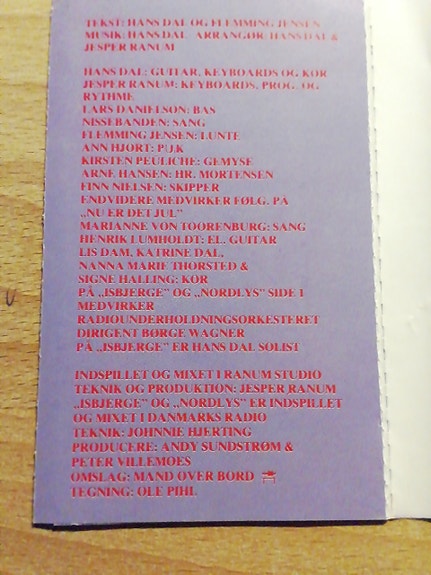 TEKST: HANS DAL OG FLEMMING JENSEN
MUSIK: HANS DAL ARRANGØR: HANS DAL &
JESPER RANUM
HANS DAL: GUITAR, KEYBOARDS OG KOR
JESPER RANUM: KEYBOARDS, PROG. OG
RYTHME
LARS DANIELSON: BAS
NISSEBANDEN: SANG
FLEMMING JENSEN: LUNTE
ANN HJORT: PUK
KIRSTEN PEULICHE: GEMYSE
ARNE HANSEN: HR. MORTENSEN
FINN NIELSEN: SKIPPER
ENDVIDERE MEDVIRKER FØLG. PÅ
„NU ER DET JUL”
MARIANNE VON TOORENBURG: SANG
HENRIK LUMHOLDT: EL. GUITAR
LIS DAM, KATRINE DAL,
NANNA MARIE THORSTED &
SIGNE HALLING: KOR
PÅ „ISBJERGE” OG „NORDLYS” SIDE 1
MEDVIRKER
RADIOUNDERHOLDNINGSORKESTERET
DIRIGENT BØRGE WAGNER
PÅ „ISBJERGE” ER HANS DAL SOLIST
INDSPILLET OG MIXET I RANUM STUDIO
TEKNIK OG PRODUKTION: JESPER RANUM
„ISBJERGE” OG „NORDLYS” ER INDSPILLET
OG MIXET I DANMARKS RADIO
TEKNIK: JOHNNIE HJERTING
PRODUCERE: ANDY SUNDSTRØM &
PETER VILLEMOES
OMSLAG: MAND OVER BORD
TEGNING: OLE PIHL